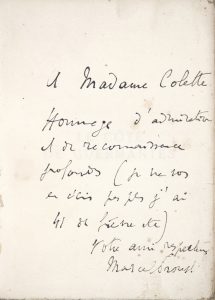 A Madame Colette
Hommage d'admiration
et de reconnaissance
profondes (je ne vous
en écris pas plus j'ai
41 de fièvre etc)
Votre ami respectueux
Marcel Proust